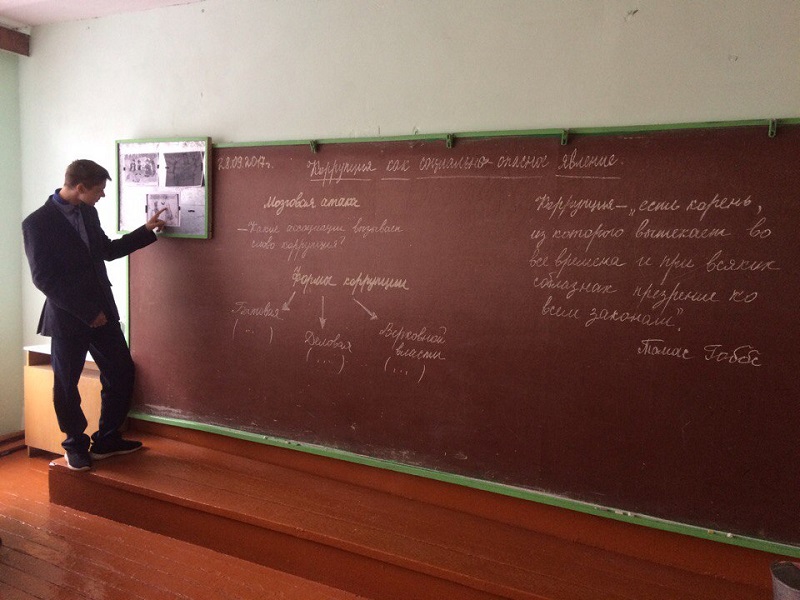 28.09.2017г. Коррупция как социально опасное явление.
Мозговая атака
– Какие ассоциации вызывает
слово коррупция?
Формы коррупции
Бытовая
(...)
Деловая
(...)
Верховной
власти
(...)
Коррупция – „есть корень,
из которого вытекает во
все времена и при всяких
соблазнах презрение ко
всем законам".
Томас Гоббс